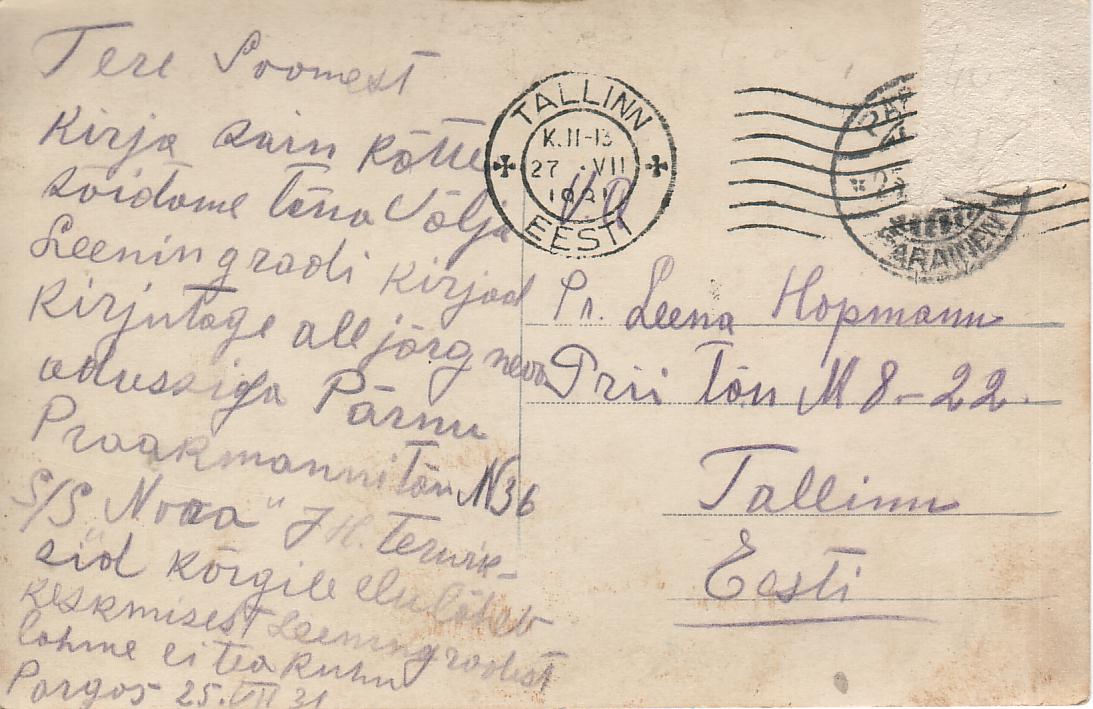 Tere Soomest
Kirja sain kätte
sõidame täna välja
Leeningradi kirjad
kirjutage all järgneva
adussiga Pärnu
Praakmanni tän N36
S/S „Nora" J H. Tervik-
sid kõigile elu läheb
keskmisest Leeningradist
lähme ei tea kuhu
Pargas 25.VII 31
TALLINN
K.11-13
27 . VII
EESTI
PARAINEN
Pr. Leena Hopmann
Prii tän M 8-22.
Tallinn
Eesti